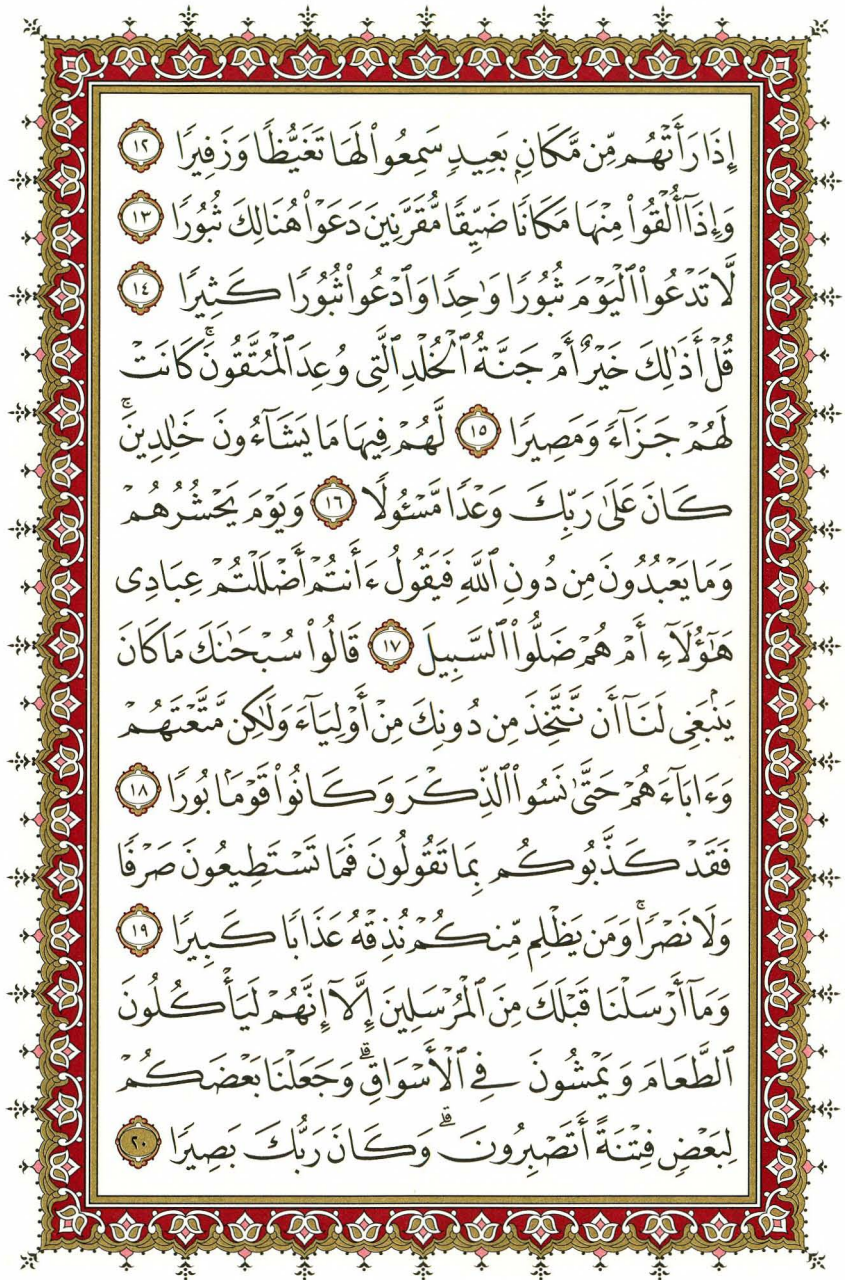 إِذَا رَأَتْهُم مِّن مَّكَانٍۭ بَعِيدٍ سَمِعُوا۟ لَهَا تَغَيُّظًا وَزَفِيرًا ١٢
وَإِذَآ أُلْقُوا۟ مِنْهَا مَكَانًا ضَيِّقًا مُّقَرَّنِينَ دَعَوْا۟ هُنَالِكَ ثُبُورًا ١٣
لَّا تَدْعُوا۟ ٱلْيَوْمَ ثُبُورًا وَٰحِدًا وَٱدْعُوا۟ ثُبُورًا كَثِيرًا ١٤
قُلْ أَذَٰلِكَ خَيْرٌ أَمْ جَنَّةُ ٱلْخُلْدِ ٱلَّتِى وُعِدَ ٱلْمُتَّقُونَ ۚ كَانَتْ
لَهُمْ جَزَآءً وَمَصِيرًا ١٥ لَّهُمْ فِيهَا مَا يَشَآءُونَ خَٰلِدِينَ ۚ
كَانَ عَلَىٰ رَبِّكَ وَعْدًا مَّسْـُٔولًا ١٦ وَيَوْمَ يَحْشُرُهُمْ
وَمَا يَعْبُدُونَ مِن دُونِ ٱللَّهِ فَيَقُولُ ءَأَنتُمْ أَضْلَلْتُمْ عِبَادِى
هَٰٓؤُلَآءِ أَمْ هُمْ ضَلُّوا۟ ٱلسَّبِيلَ ١٧ قَالُوا۟ سُبْحَٰنَكَ مَا كَانَ
يَنۢبَغِى لَنَآ أَن نَّتَّخِذَ مِن دُونِكَ مِنْ أَوْلِيَآءَ وَلَٰكِن مَّتَّعْتَهُمْ
وَءَابَآءَهُمْ حَتَّىٰ نَسُوا۟ ٱلذِّكْرَ وَكَانُوا۟ قَوْمًۢا بُورًا ١٨
فَقَدْ كَذَّبُوكُم بِمَا تَقُولُونَ فَمَا تَسْتَطِيعُونَ صَرْفًا
وَلَا نَصْرًا ۚ وَمَن يَظْلِم مِّنكُمْ نُذِقْهُ عَذَابًا كَبِيرًا ١٩
وَمَآ أَرْسَلْنَا قَبْلَكَ مِنَ ٱلْمُرْسَلِينَ إِلَّآ إِنَّهُمْ لَيَأْكُلُونَ
ٱلطَّعَامَ وَيَمْشُونَ فِى ٱلْأَسْوَاقِ ۗ وَجَعَلْنَا بَعْضَكُمْ
لِبَعْضٍ فِتْنَةً أَتَصْبِرُونَ ۗ وَكَانَ رَبُّكَ بَصِيرًا ٢٠